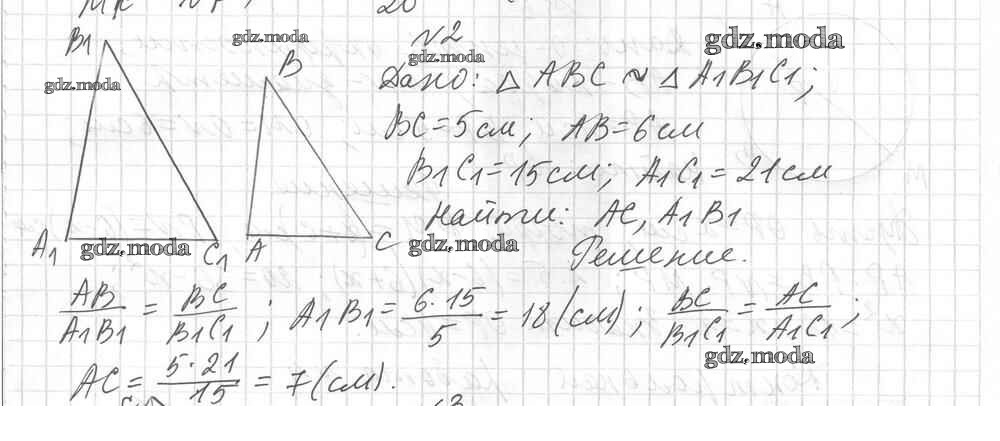 №2
Дано: △ ABC ~ △ A1B1C1;
BC = 5 см; AB = 6 см
B1C1 = 15 см; A1C1 = 21 см
Найти: AC, A1B1
Решение.
B1
B
A1
C1
A
C
AB/A1B1 = BC/B1C1; A1B1 = 6·15/5 = 18 (см); BC/B1C1 = AC/A1C1;
AC = 5·21/15 = 7 (см).
gdz.moda
gdz.moda
gdz.moda
gdz.moda
gdz.moda
gdz.moda
gdz.moda